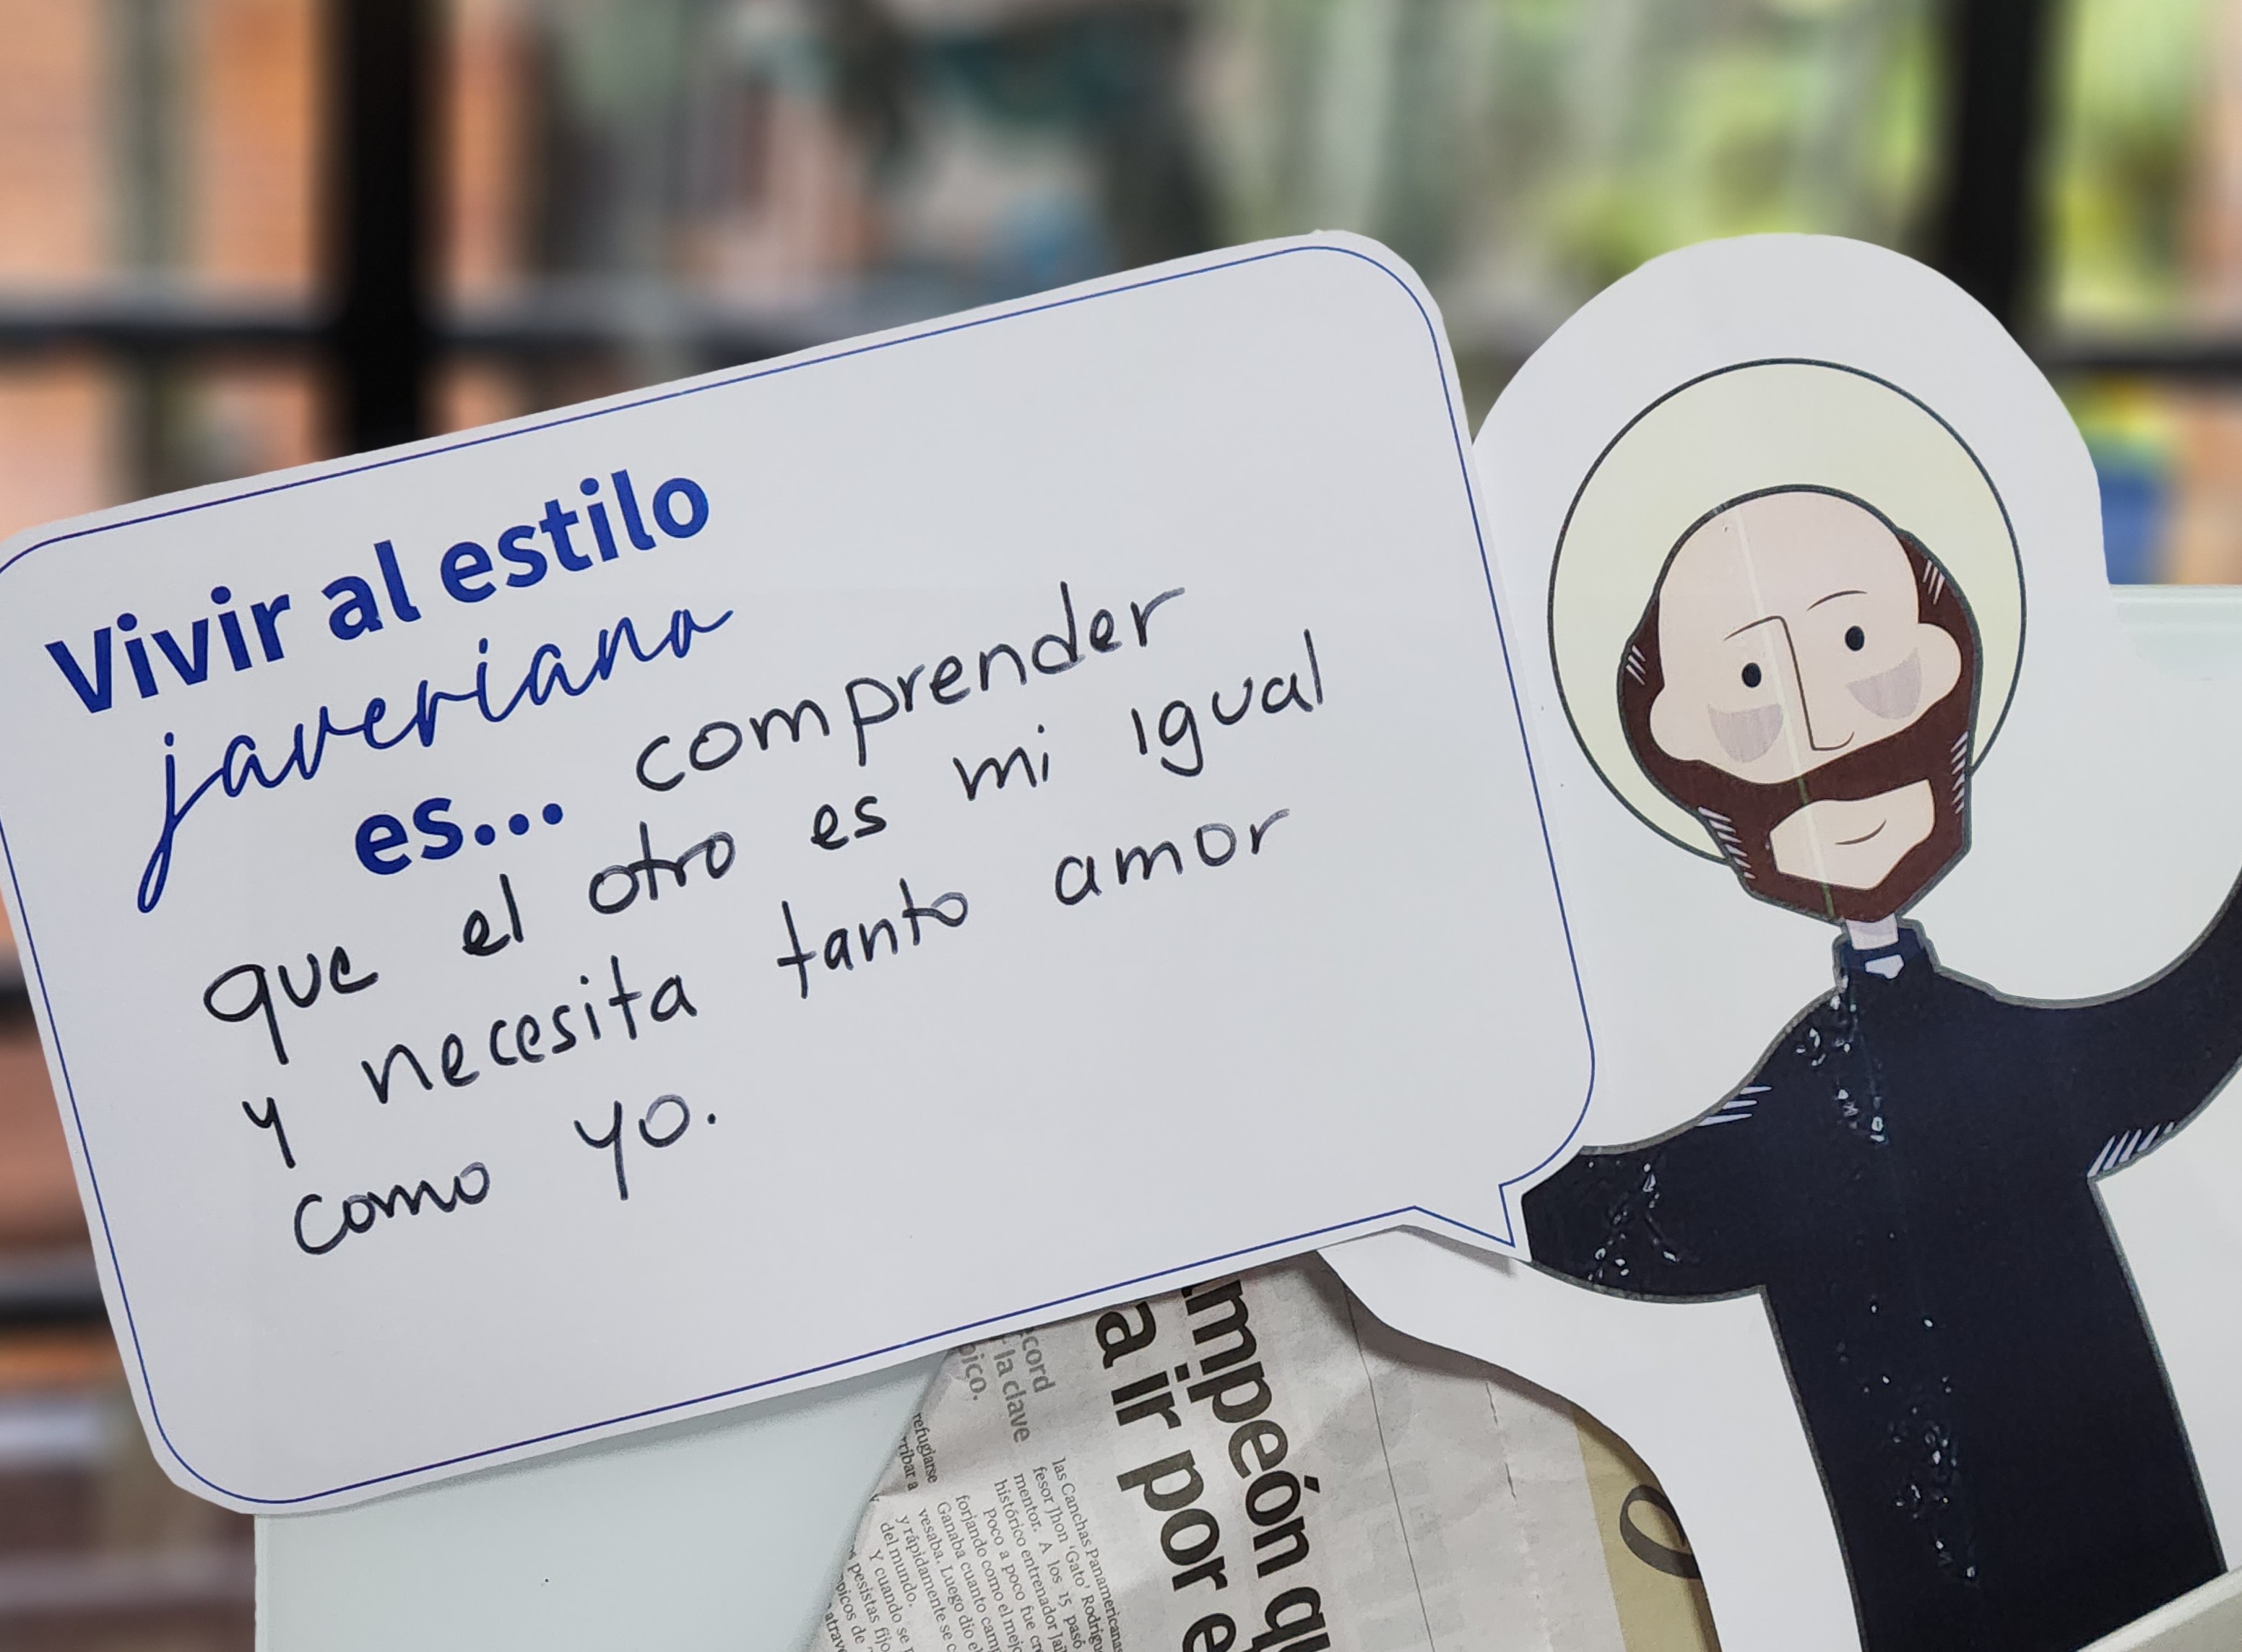 Vivir al estilo
javeriana
es... comprender
que el otro es mi igual
y necesita tanto amor
como yo.
mpeón qu
a ir por e
cord
la clave
pico.
refugiarse
rribar a
las Canchas Panamericanas
fesor Jhon 'Gato' Rodrígu
mentor. A los 15 pasó
histórico entrenador Jai
Poco a poco fue cr
forjando como el mejo
Ganaba cuanto camp
vesaba. Luego dio el
y rápidamente se c
del mundo.
Y cuando se
pesistas fijo
picos de
atrav